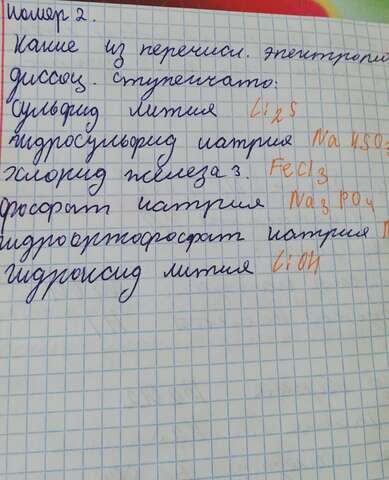 номер 2.
Какие из перечисл. электроли
диссоц. ступенчато:
сульфид лития Li2S
гидросульфид натрия NaHSO3
хлорид железа 3. FeCl3
фосфат натрия Na3PO4
гидроортофосфат натрия N
гидроксид лития LiOH